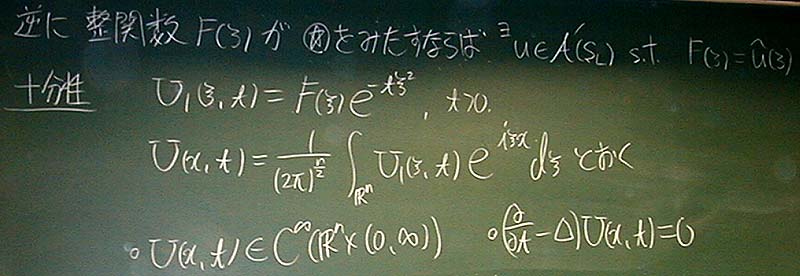 逆に 整関数 F(ζ) が をみたすならば ∃u∈A'(S_L) s.t. F(ζ)=û(ζ)
十分性 U₁(ξ,t)=F(ξ)e^{-tξ²}, t>0.
U(x,t)=\frac{1}{(2π)^{\frac{n}{2}}}∫_{ℝⁿ}U₁(ξ,t)e^{iξx}dξ とおく
○U(x,t)∈C^∞(ℝⁿ×(0,∞)) ○(\frac{∂}{∂t}-Δ)U(x,t)=0